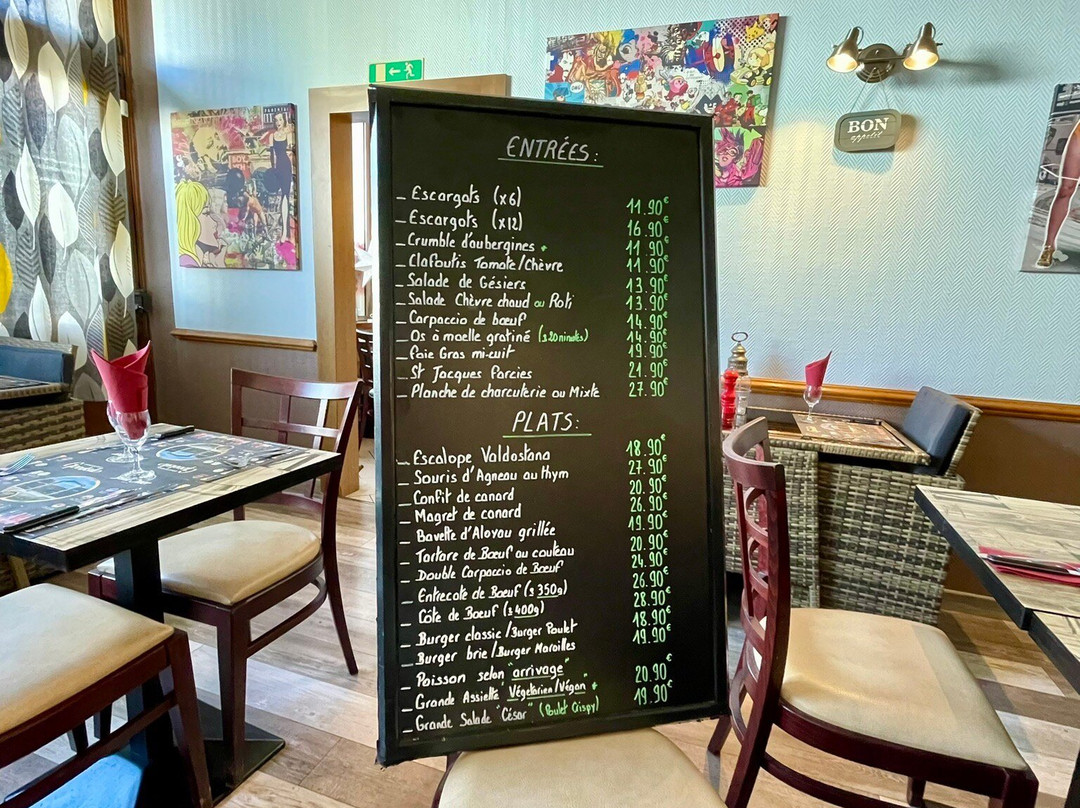 ENTRÉES:
_ Escargots (x6) 11.90€
_ Escargots (x12) 16.90€
_ Crumble d'aubergines 11.90€
_ Clafoutis Tomate/Chèvre 11.90€
_ Salade de Gésiers 13.90€
_ Salade Chèvre chaud ou Roti 13.90€
_ Carpaccio de bœuf 14.90€
_ Os à moelle gratiné (± 20 minutes) 14.90€
_ Foie Gras mi-cuit 19.90€
_ St Jacques Farcies 21.90€
_ Planche de charcuterie ou Mixte 27.90€
PLATS:
_ Escalope Valdostana 18.90€
_ Souris d'Agneau au thym 27.90€
_ Confit de canard 20.90€
_ Magret de canard 26.90€
_ Bavette d'Aloyau grillée 19.90€
_ Tartare de Bœuf au couteau 20.90€
_ Double Carpaccio de Bœuf 24.90€
_ Entrecote de Bœuf (± 350g) 26.90€
_ Côte de Boeuf (± 400g) 28.90€
_ Burger classic/Burger Poulet 18.90€
_ Burger brie/Burger Maroilles 19.90€
_ Poisson selon "arrivage"
_ Grande Assiette "Végétarien/Végan" 20.90€
_ Grande Salade "César" (Poulet Crispy) 19.90€
BON
appétit